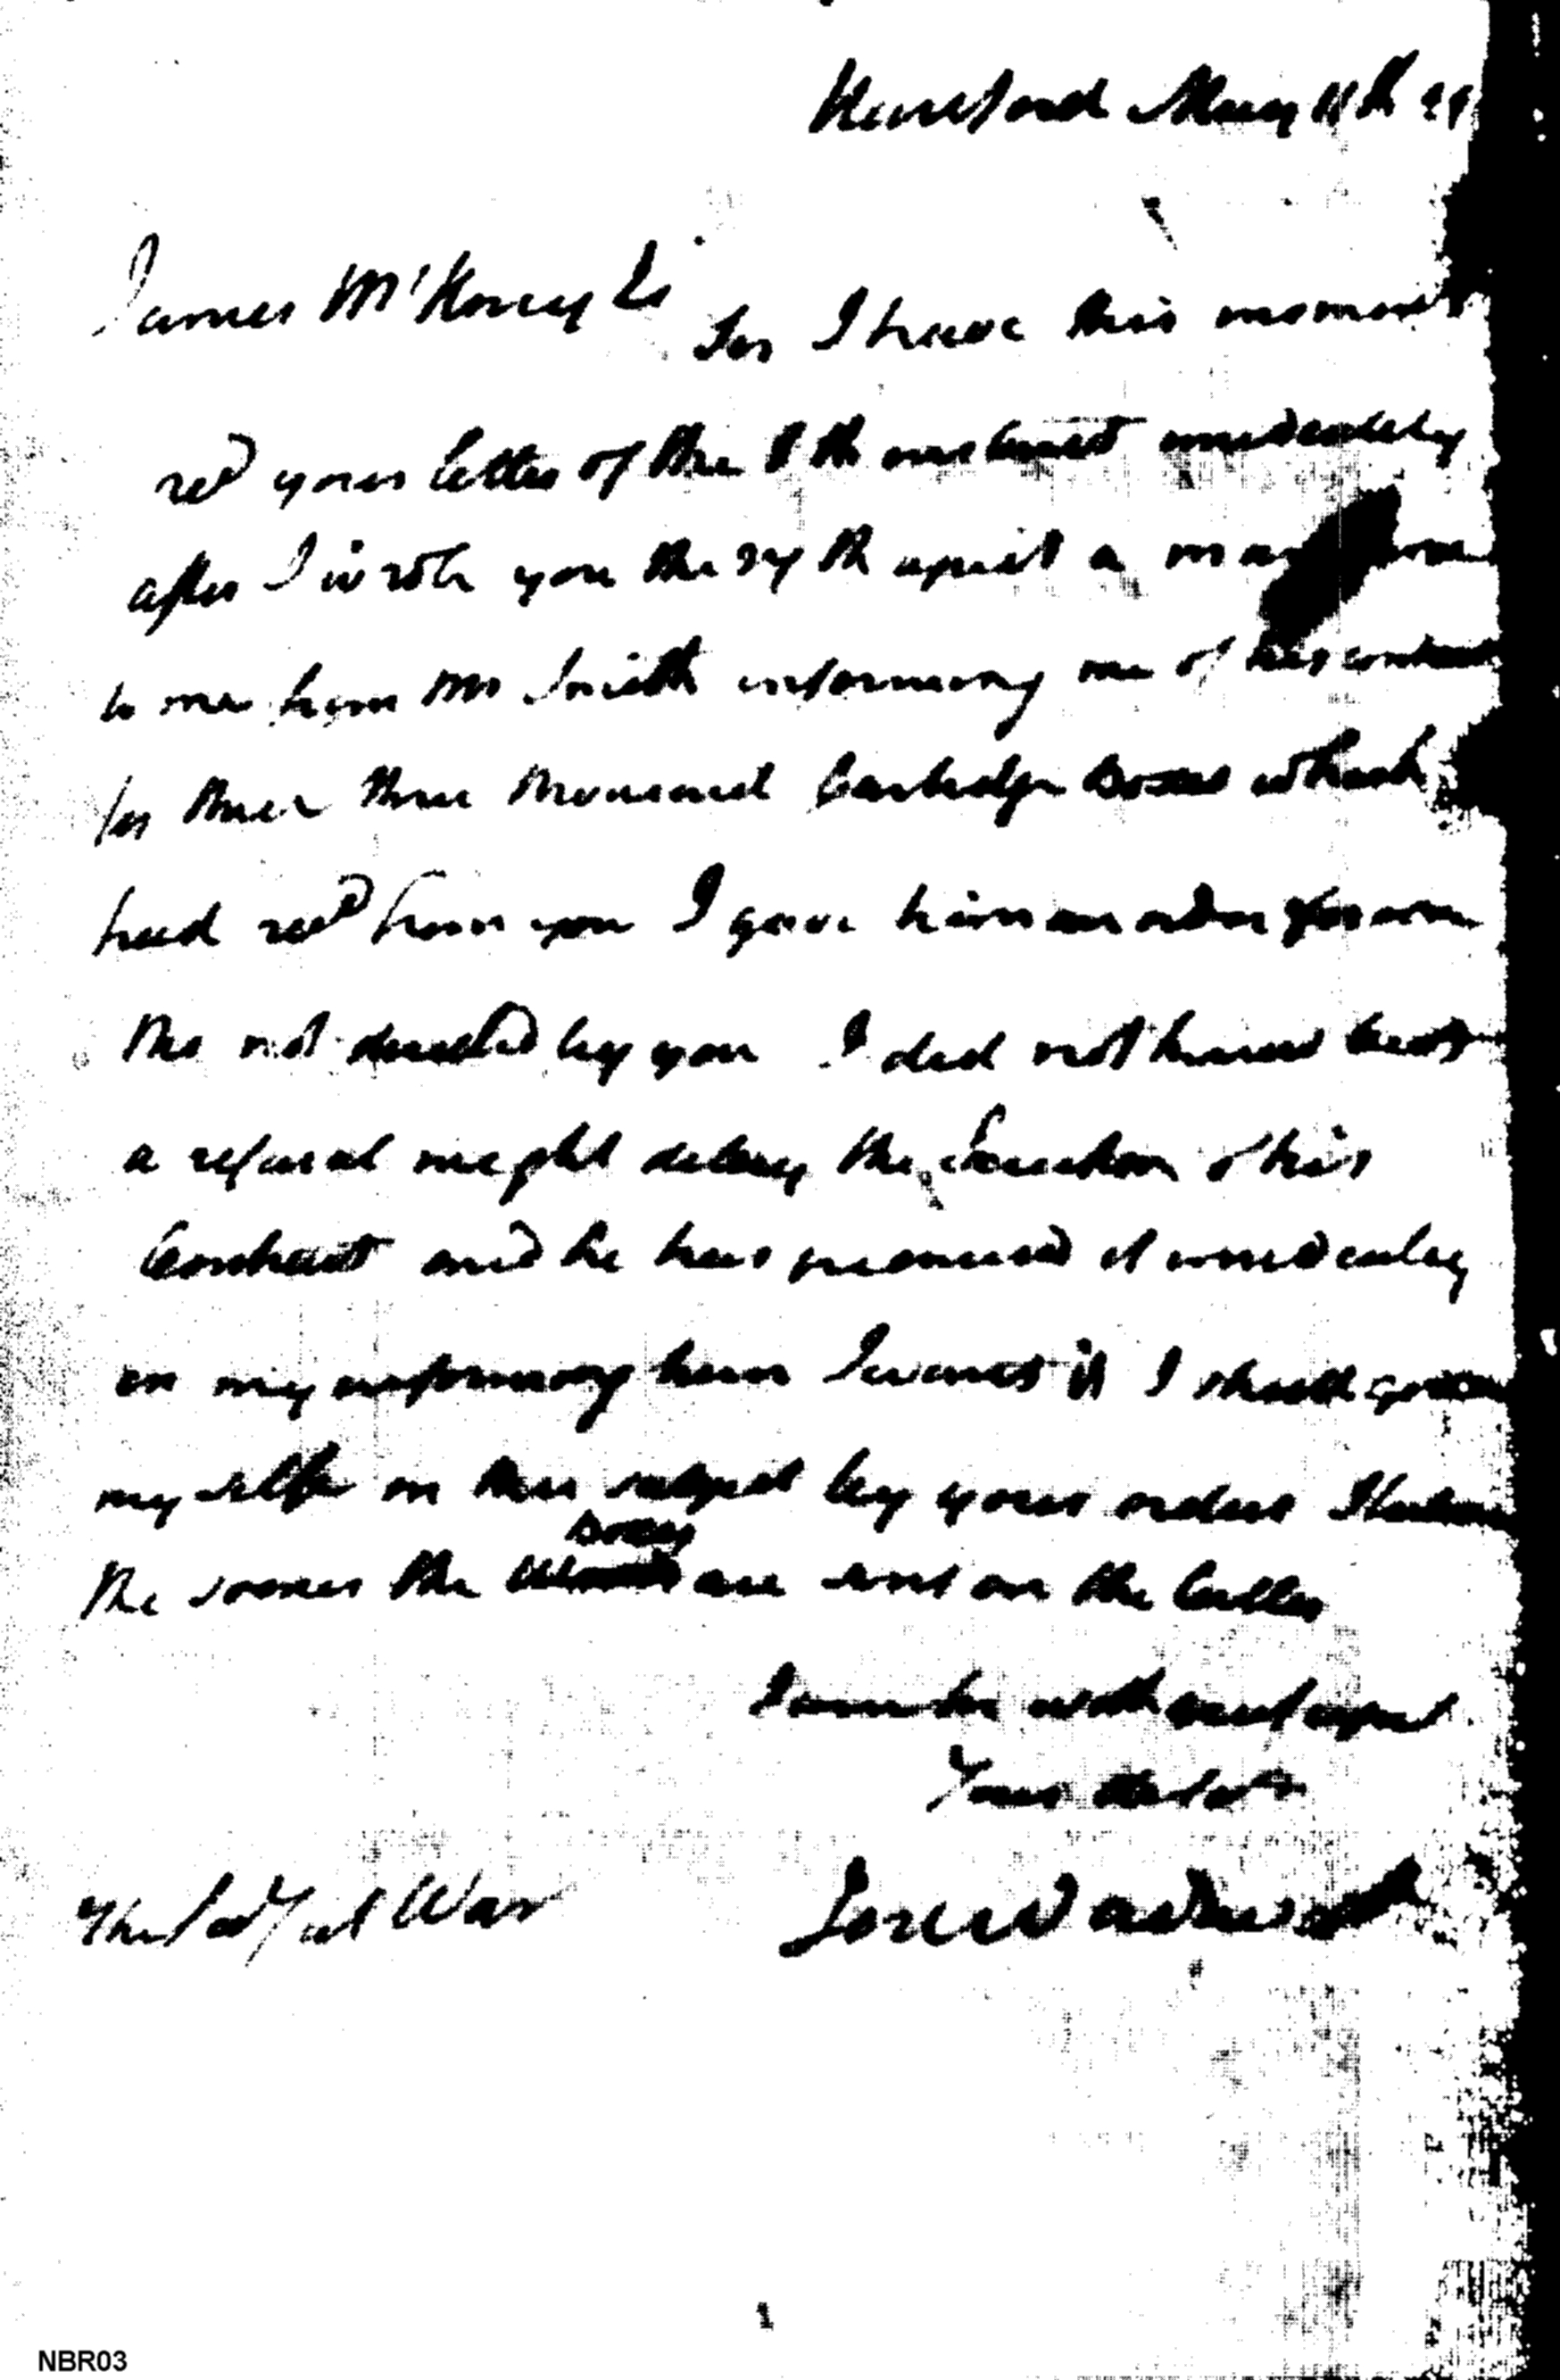 Hartford May 11th 99
James McHenry Es
Sir I have this moment
recd your letter of the 8th instant immediately
after I wrote you the 27th april a man
to me from Mr Smith informing me of his contract
for three thousand Cartridge Boxes which
had recd from you I gave him an order
tho not directed by you I did not know but
a refusal might delay the Execution of his
Contract and he has promised it immedialey
on my informing him I want it I shall govern
my selfe on this subject by your orders
Boxes
the sooner the are sent on the better
I am Sir with respect
Your
The Secy at War Jere Wadsworth
1
NBR03